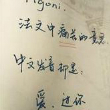 Agoni.
法文中痛苦的意思
中文发音却是：
爱过你